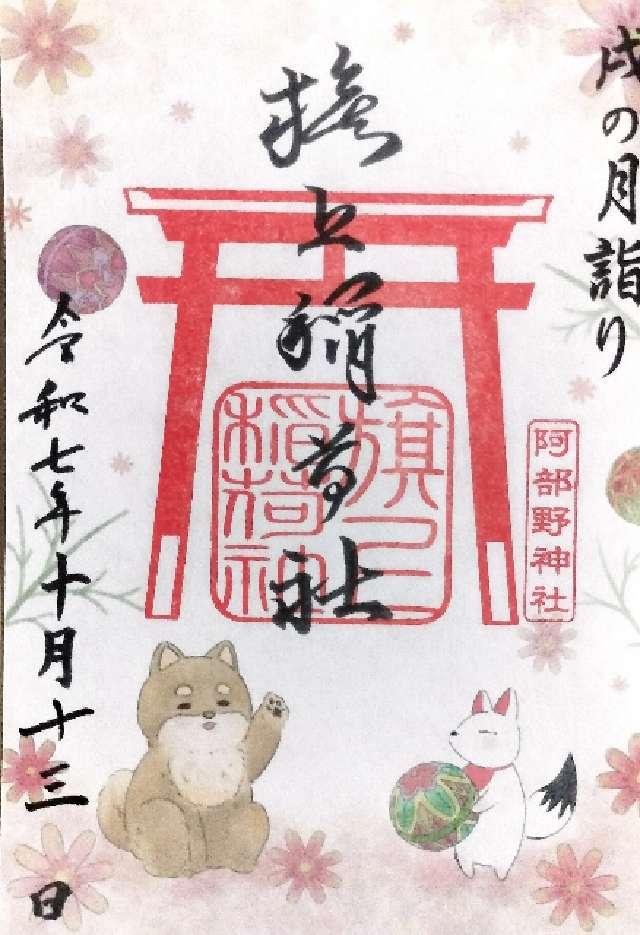 戌の月詣り
阿部野神社
旗上稲荷社
旗上
稲荷神
令和七年十月十三日